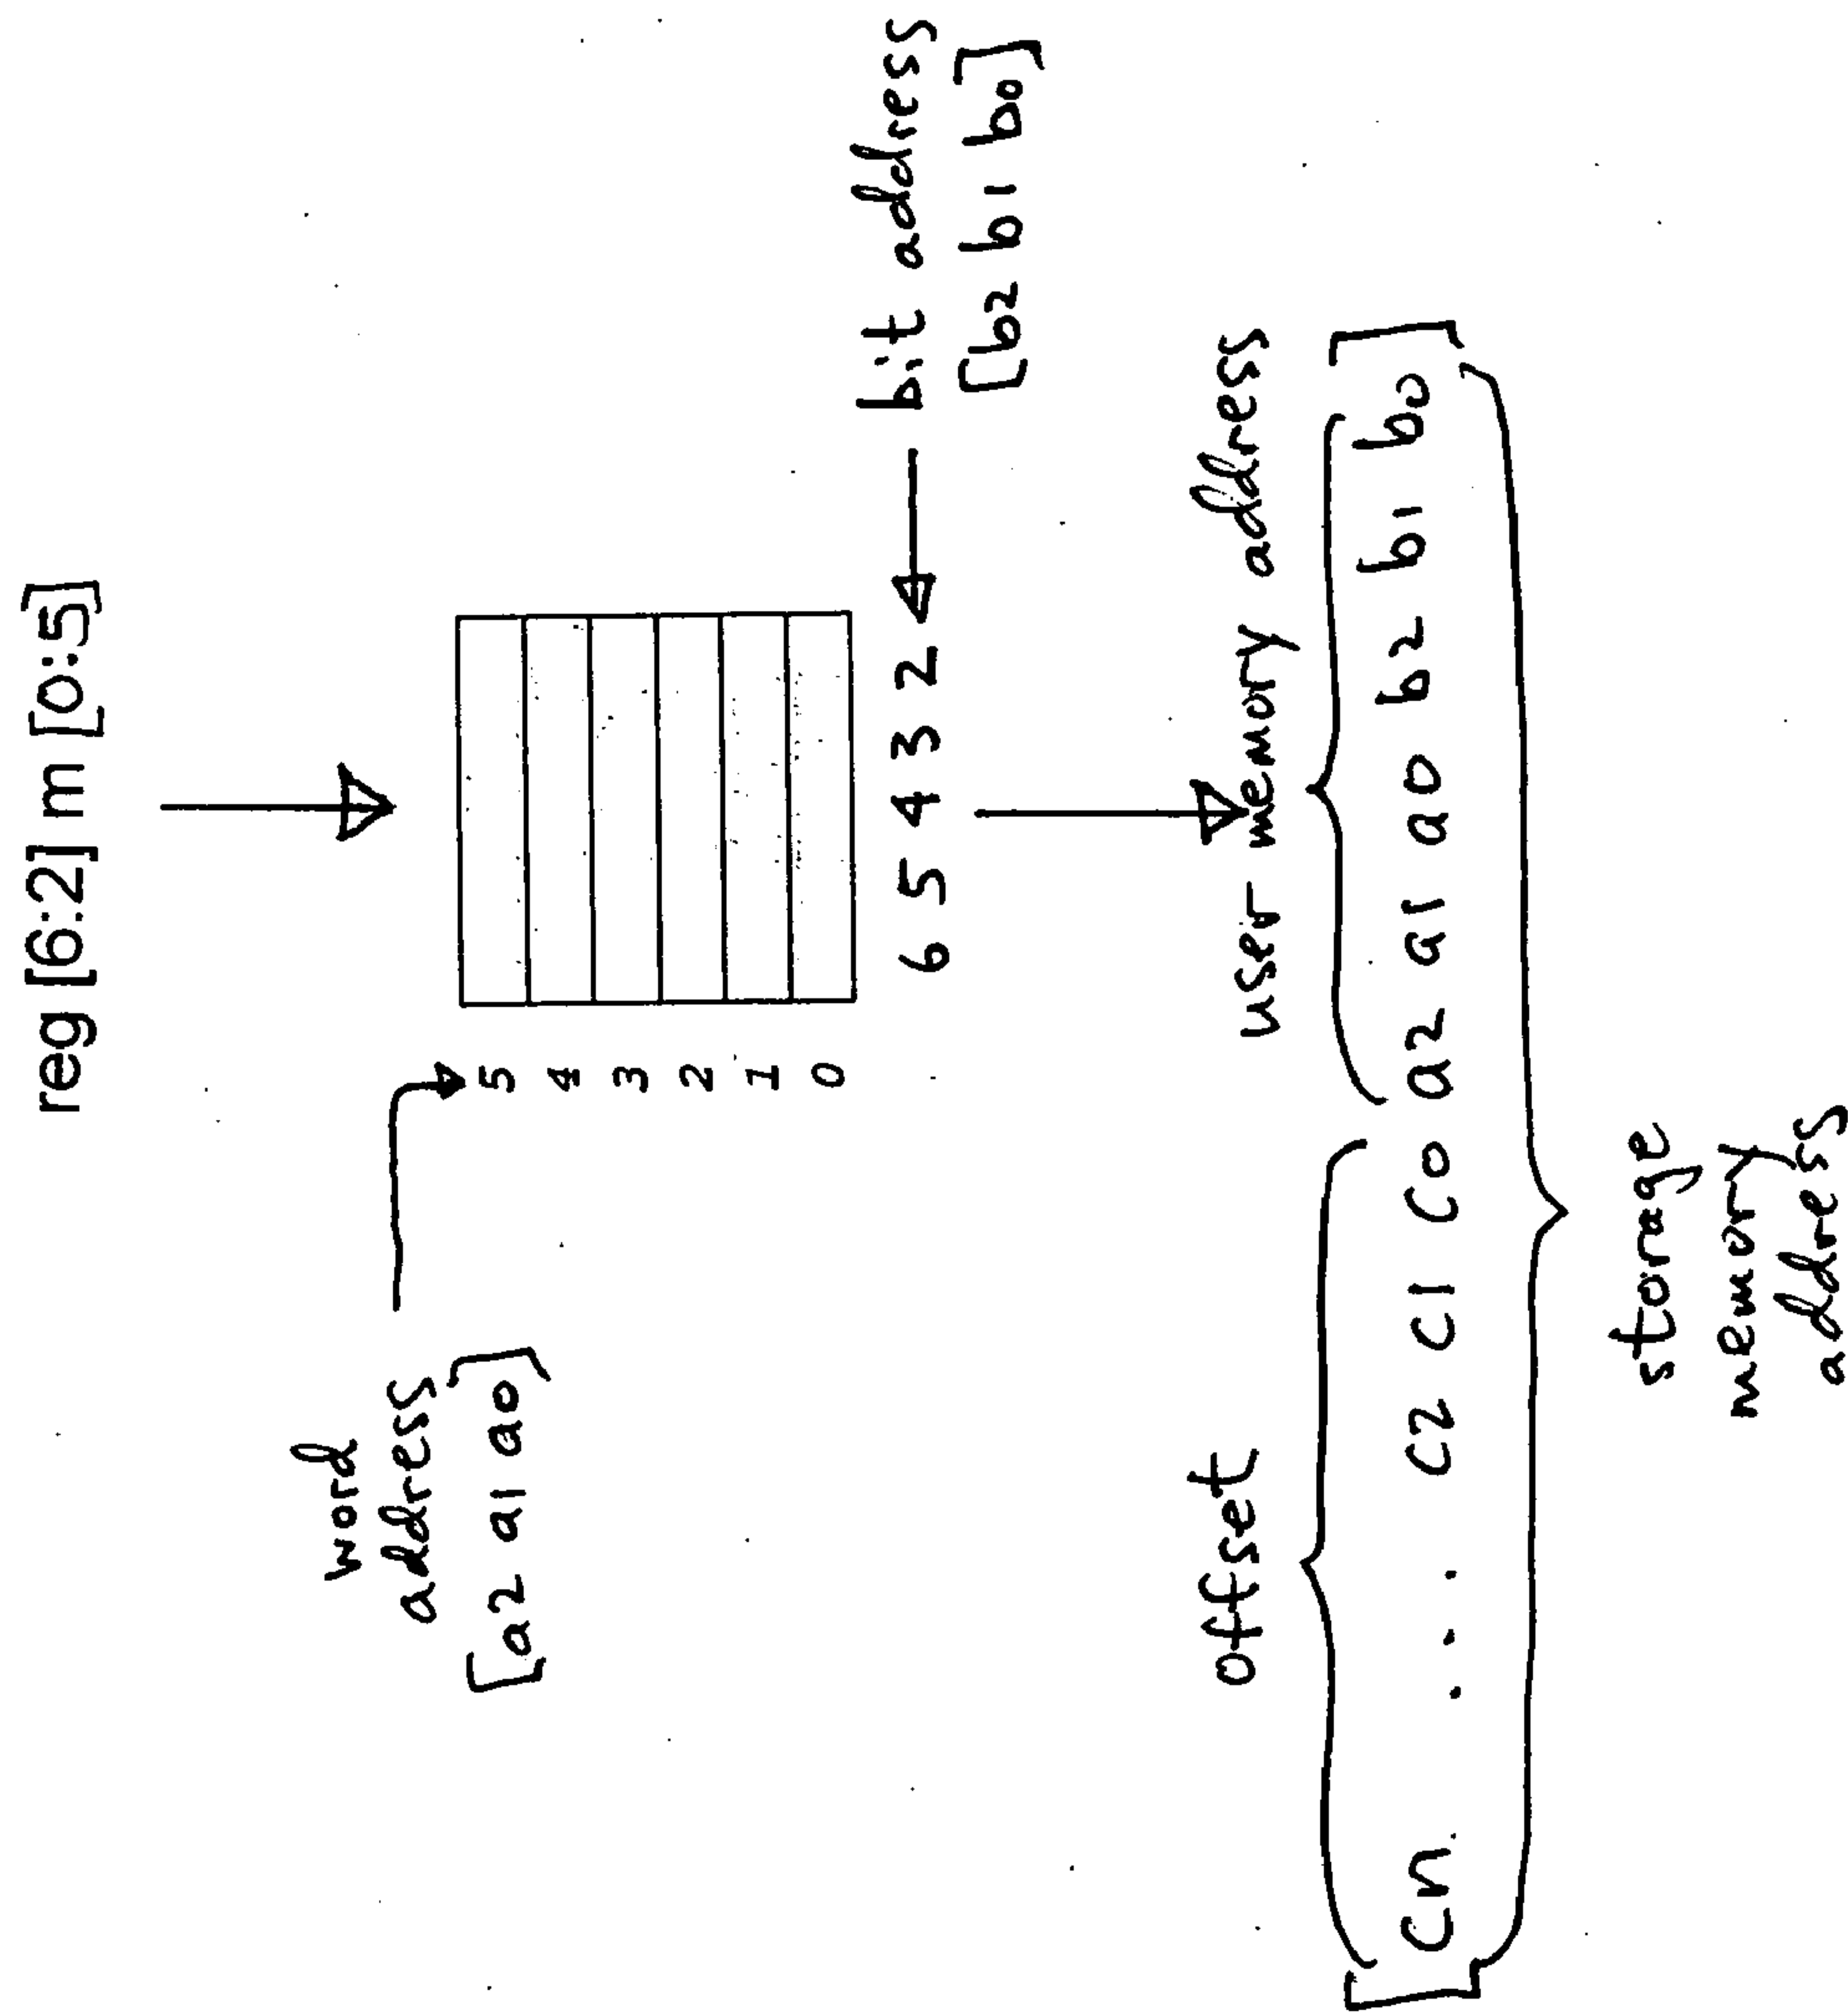 reg [6:2] m [0:5]
word
address
[a2 a1 a0]
5
4
3
2
1
0
6 5 4 3 2
bit address
[b2 b1 b0]
offset
user memory address
[cn . . . c2 c1 c0 a2 a1 a0 b2 b1 b0]
storage
memory
address